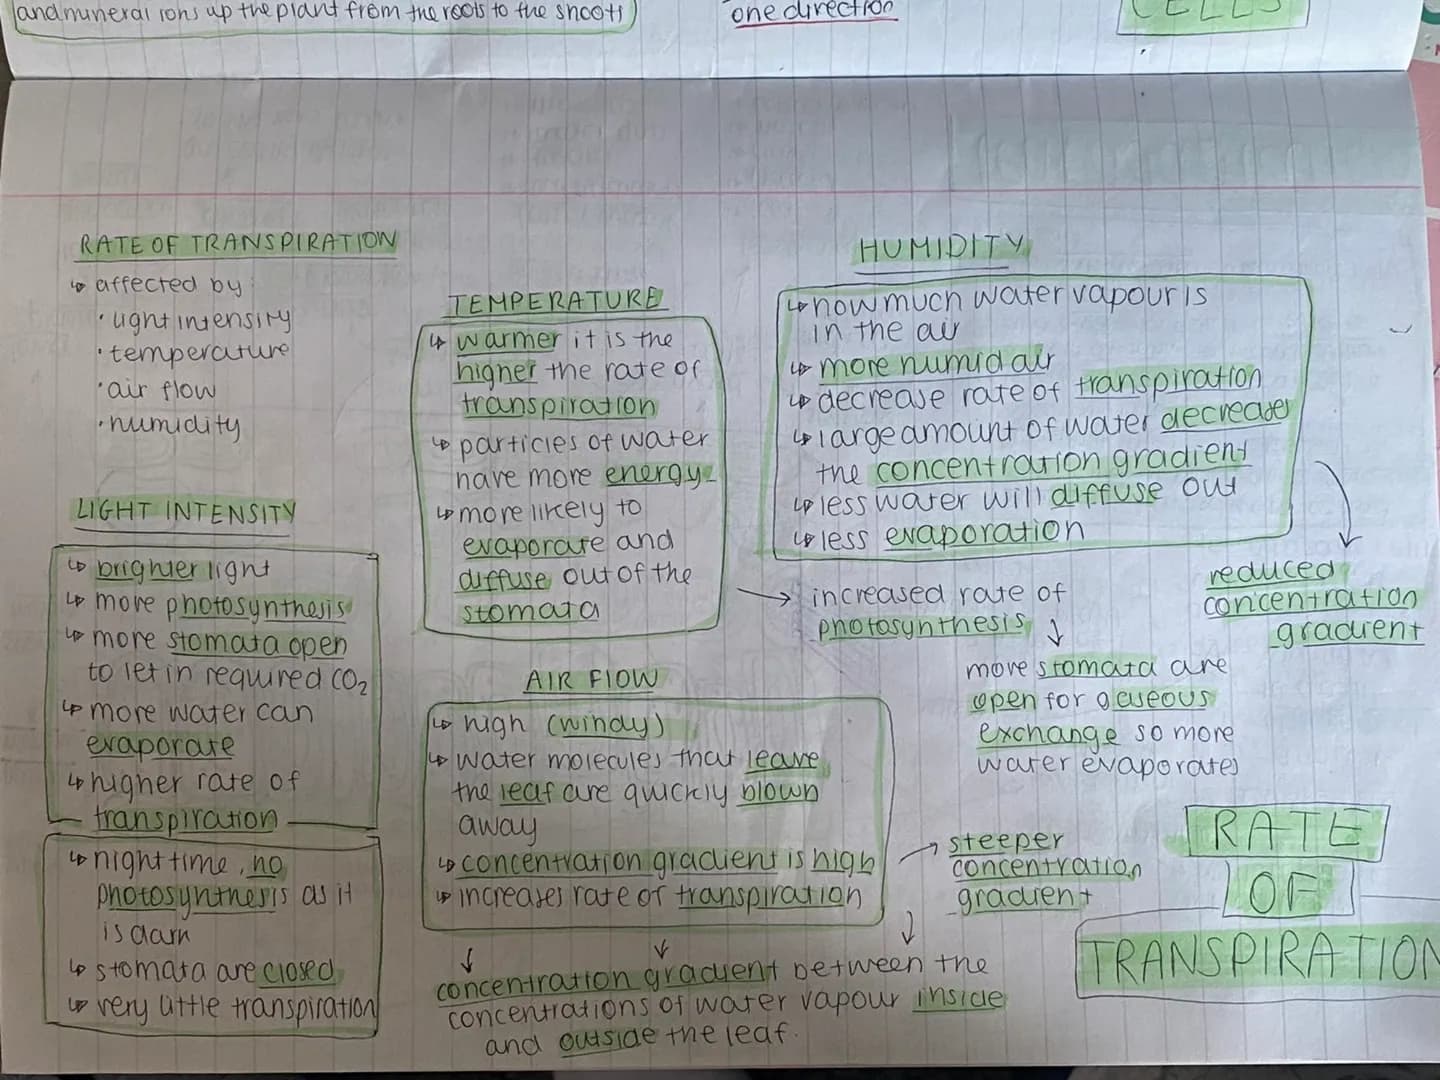 and mineral ions up the plant from the roots to the shoots
one direction
CELLS
RATE OF TRANSPIRATION
↳ affected by
· light intensity
· temperature
· air flow
· humidity
LIGHT INTENSITY
↳ brighter light
↳ more photosynthesis
↳ more stomata open
to let in required CO₂
↳ more water can
evaporate
↳ higher rate of
transpiration
↳ night time, no
photosynthesis as it
is dark
↳ stomata are closed
↳ very little transpiration
TEMPERATURE
↳ warmer it is the
higher the rate of
transpiration
↳ particles of water
have more energy
↳ more likely to
evaporate and
diffuse out of the
stomata
→ increased rate of
photosynthesis ↓
more stomata are
open for gaseous
exchange so more
water evaporates
AIR FLOW
↳ high (windy)
↳ water molecules that leave
the leaf are quickly blown
away
↳ concentration gradient is high
↳ increases rate of transpiration
→ steeper
concentration
gradient
concentration gradient between the
concentrations of water vapour inside
and outside the leaf.
HUMIDITY
↳ how much water vapour is
in the air
↳ more humid air
↳ decrease rate of transpiration
↳ large amount of water decreases
the concentration gradient
↳ less water will diffuse out
↳ less evaporation
reduced
concentration
gradient
RATE
OF
TRANSPIRATION